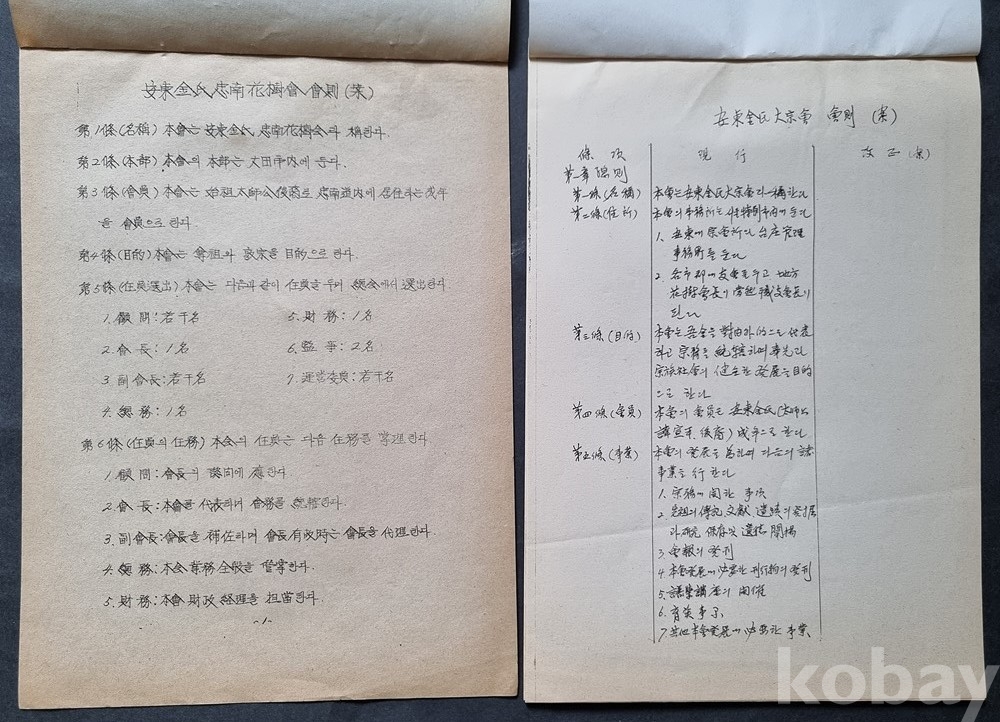 安東金氏忠南花樹會 會則(案)
第1條(名稱) 本會는 安東金氏 忠南花樹會라 稱한다.
第2條(本部) 本會의 本部는 大田市內에 둔다.
第3條(會員) 本會는 始祖太師公後裔로 忠南道內에 居住하는 成年
을 會員으로 한다.
第4條(目的) 本會는 奉祖와 敦宗을 目的으로 한다.
第5條(任員選出) 本會는 다음과 같이 任員을 두며 總會에서 選出한다
1. 顧問: 若干名
5. 財務: 1名
2. 會長: 1名
6. 監事: 2名
3. 副會長: 若干名
7. 運營委員: 若干名
4. 總務: 1名
第6條(任員의 任務) 本會의 任員은 다음 任務를 掌理한다.
1. 顧問: 會長의 諮問에 應한다.
2. 會長: 本會를 代表하며 會務를 總轄한다.
3. 副會長: 會長을 補佐하며 會長有故時는 會長을 代理한다.
4. 總務: 本會 業務 全般을 管掌한다.
5. 財務: 本會 財政 經理를 担當한다.
-1-
安東金氏大宗會 會則 (案)
條項
現行
改正(案)
第一章 總則
第一條(名稱) 本會는 安東金氏大宗會라 稱한다
第二條(住所) 本會의 事務所는 서울特別市內에 둔다
1. 安東에 宗會所라 台庄管理
事務所를 둔다
2. 各市郡에 支會를 두고 地方
花樹會長이 當然職支會長이
된다
第三條(目的) 本會는 안김을 對內外的으로 代表
하고 宗務를 統轄하며 奉先과
宗族社會의 健全한 發展을 目的
으로 한다
第四條(會員) 本會의 會員은 安東金氏(太師公
諱宣平 後裔) 成年으로 한다
第五條(事業) 本會의 發展을 爲하여 다음의 諸
事業을 行한다
1. 宗務에 関한 事項
2. 先祖의 傳記, 文獻 遺蹟의 發掘
과 研究 保存 및 遺德 闡揚
3. 會報의 發刊
4. 本會發展에 必要한 刊行物의 發刊
5. 講座의 開催
6. 育英事業
7. 其他 本會發展에 必要한 事業
kobay